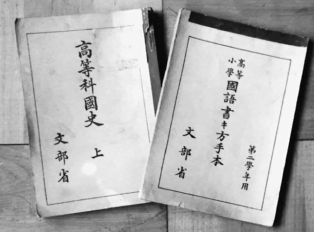 高等科國史 上
文部省
高等
小學
國語書キ方手本
第二學年用
文部省